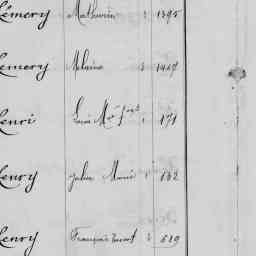 Lémery Mathurin 1395
Lemery Melaine 1417
Henri Louis Mie 171
Henry Julien Marie 132
Henry François 619